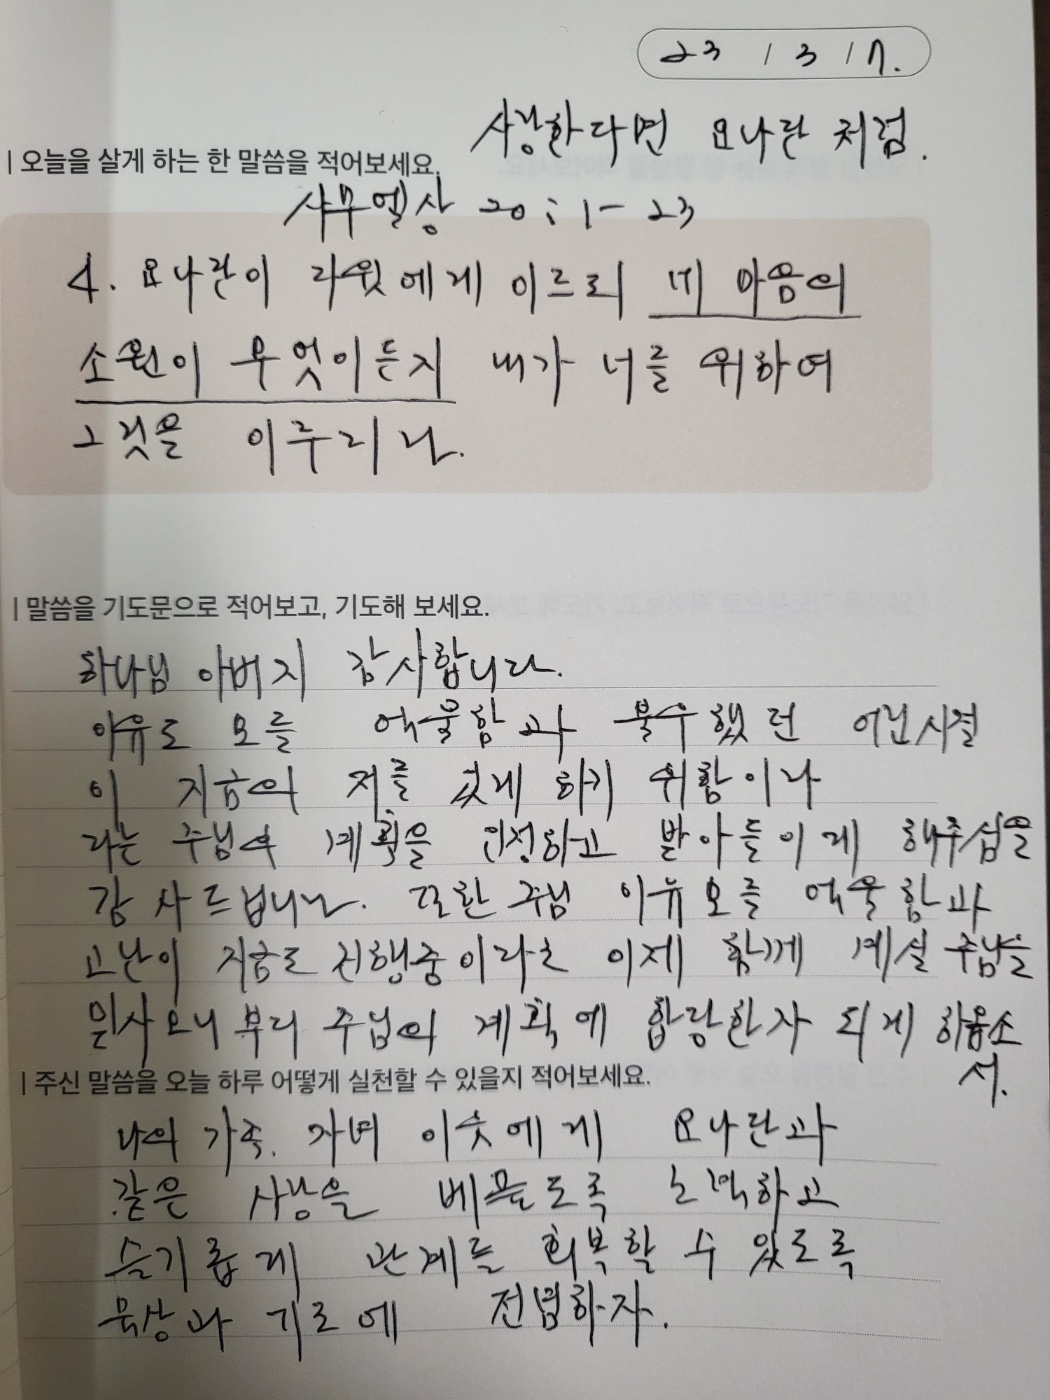 23 / 3 / 7.
사랑한다면 요나단 처럼.
| 오늘을 살게 하는 한 말씀을 적어보세요.
사무엘상 20 : 1 - 23
4. 요나단이 다윗에게 이르되 네 마음의
소원이 무엇이든지 내가 너를 위하여
그것을 이루리라.
| 말씀을 기도문으로 적어보고, 기도해 보세요.
하나님 아버지 감사합니다.
이유도 모를 억울함과 불우했던 어린시절
이 지금의 저를 있게 하기 위함이라
라는 주님의 계획을 인정하고 받아들이게 해주심을
감사드립니다. 또한 주님 이유 모를 억울함과
고난이 지금도 진행중이라도 이제 함께 계실 주님을
믿사오니 부디 주님의 계획에 합당한자 되게 하옵소
서.
| 주신 말씀을 오늘 하루 어떻게 실천할 수 있을지 적어보세요.
나의 가족. 자녀 이웃에게 요나단과
같은 사랑을 베풀도록 노력하고
슬기롭게 관계를 회복할 수 있도록
묵상과 기도에 전념하자.